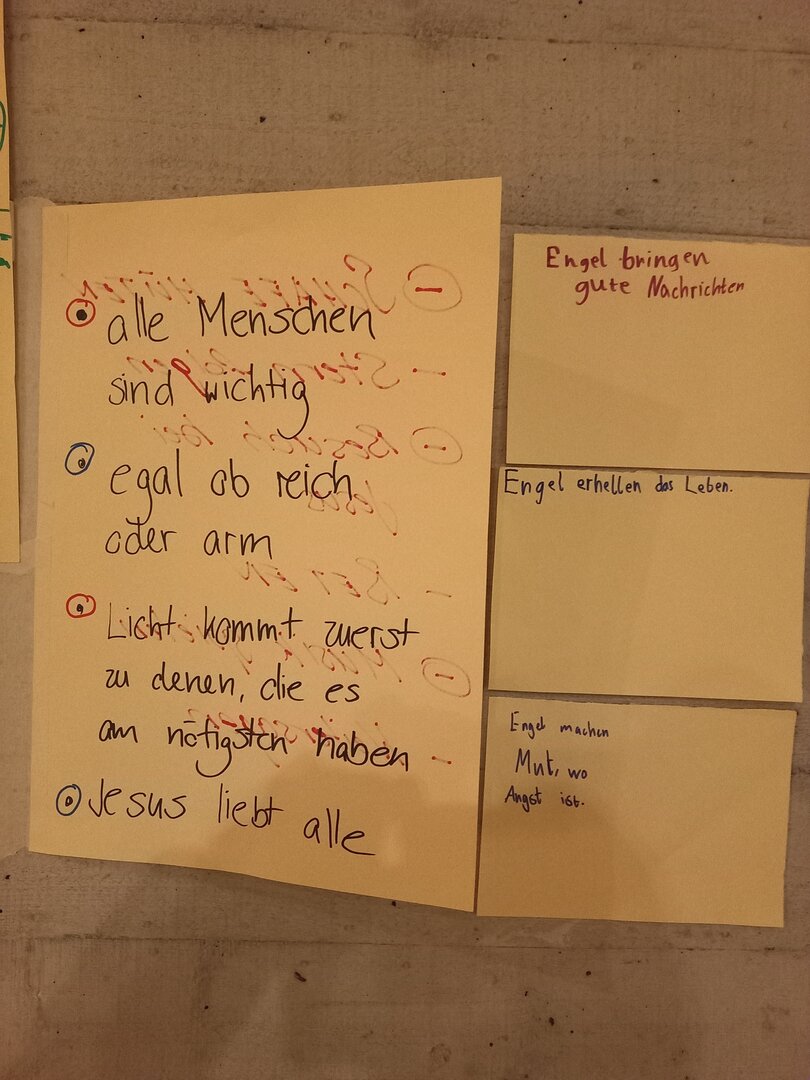 alle Menschen
sind wichtig
egal ob reich
oder arm
Licht kommt zuerst
zu denen, die es
am nötigsten haben
Jesus liebt alle
Engel bringen
gute Nachrichten
Engel erhellen das Leben.
Engel machen
Mut, wo
Angst ist.